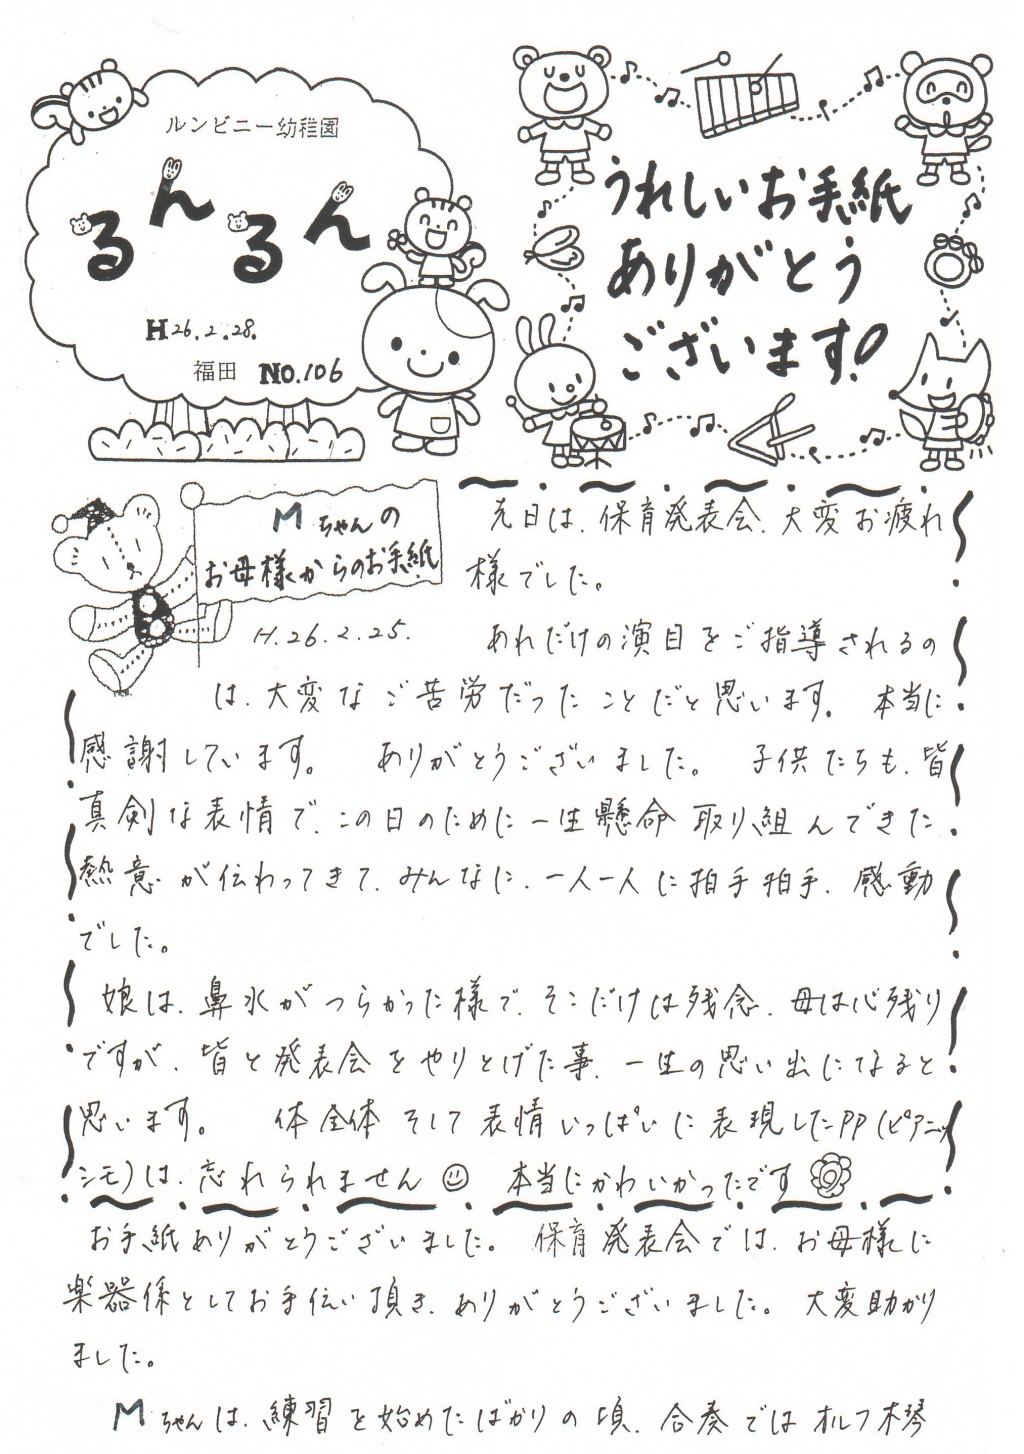 ルンビニー幼稚園
るんるん
H26.2.28.
福田 No.106
うれしいお手紙
ありがとう
ございます!
Mちゃんの
お母様からのお手紙
H.26.2.25.
先日は、保育発表会、大変お疲れ
様でした。
あれだけの演目をご指導されるの
は、大変なご苦労だったことだと思います。本当に
感謝しています。 ありがとうございました。 子供たちも、皆
真剣な表情で、この日のために一生懸命取り組んできた
熱意が伝わってきて、みんなに、一人一人に拍手拍手、感動
でした。
娘は、鼻水がつらかった様で、そこだけは残念、母は心残り
ですが、皆と発表会をやりとげた事、一生の思い出になると
思います。 体全体そして表情いっぱいに表現したPP(ピアニッ
シモ)は、忘れられません 本当にかわいかったです
お手紙ありがとうございました。 保育発表会では、お母様に
楽器係としてお手伝い頂き、ありがとうございました。 大変助かり
ました。
Mちゃんは、練習を始めたばかりの頃、合奏ではオルフ木琴